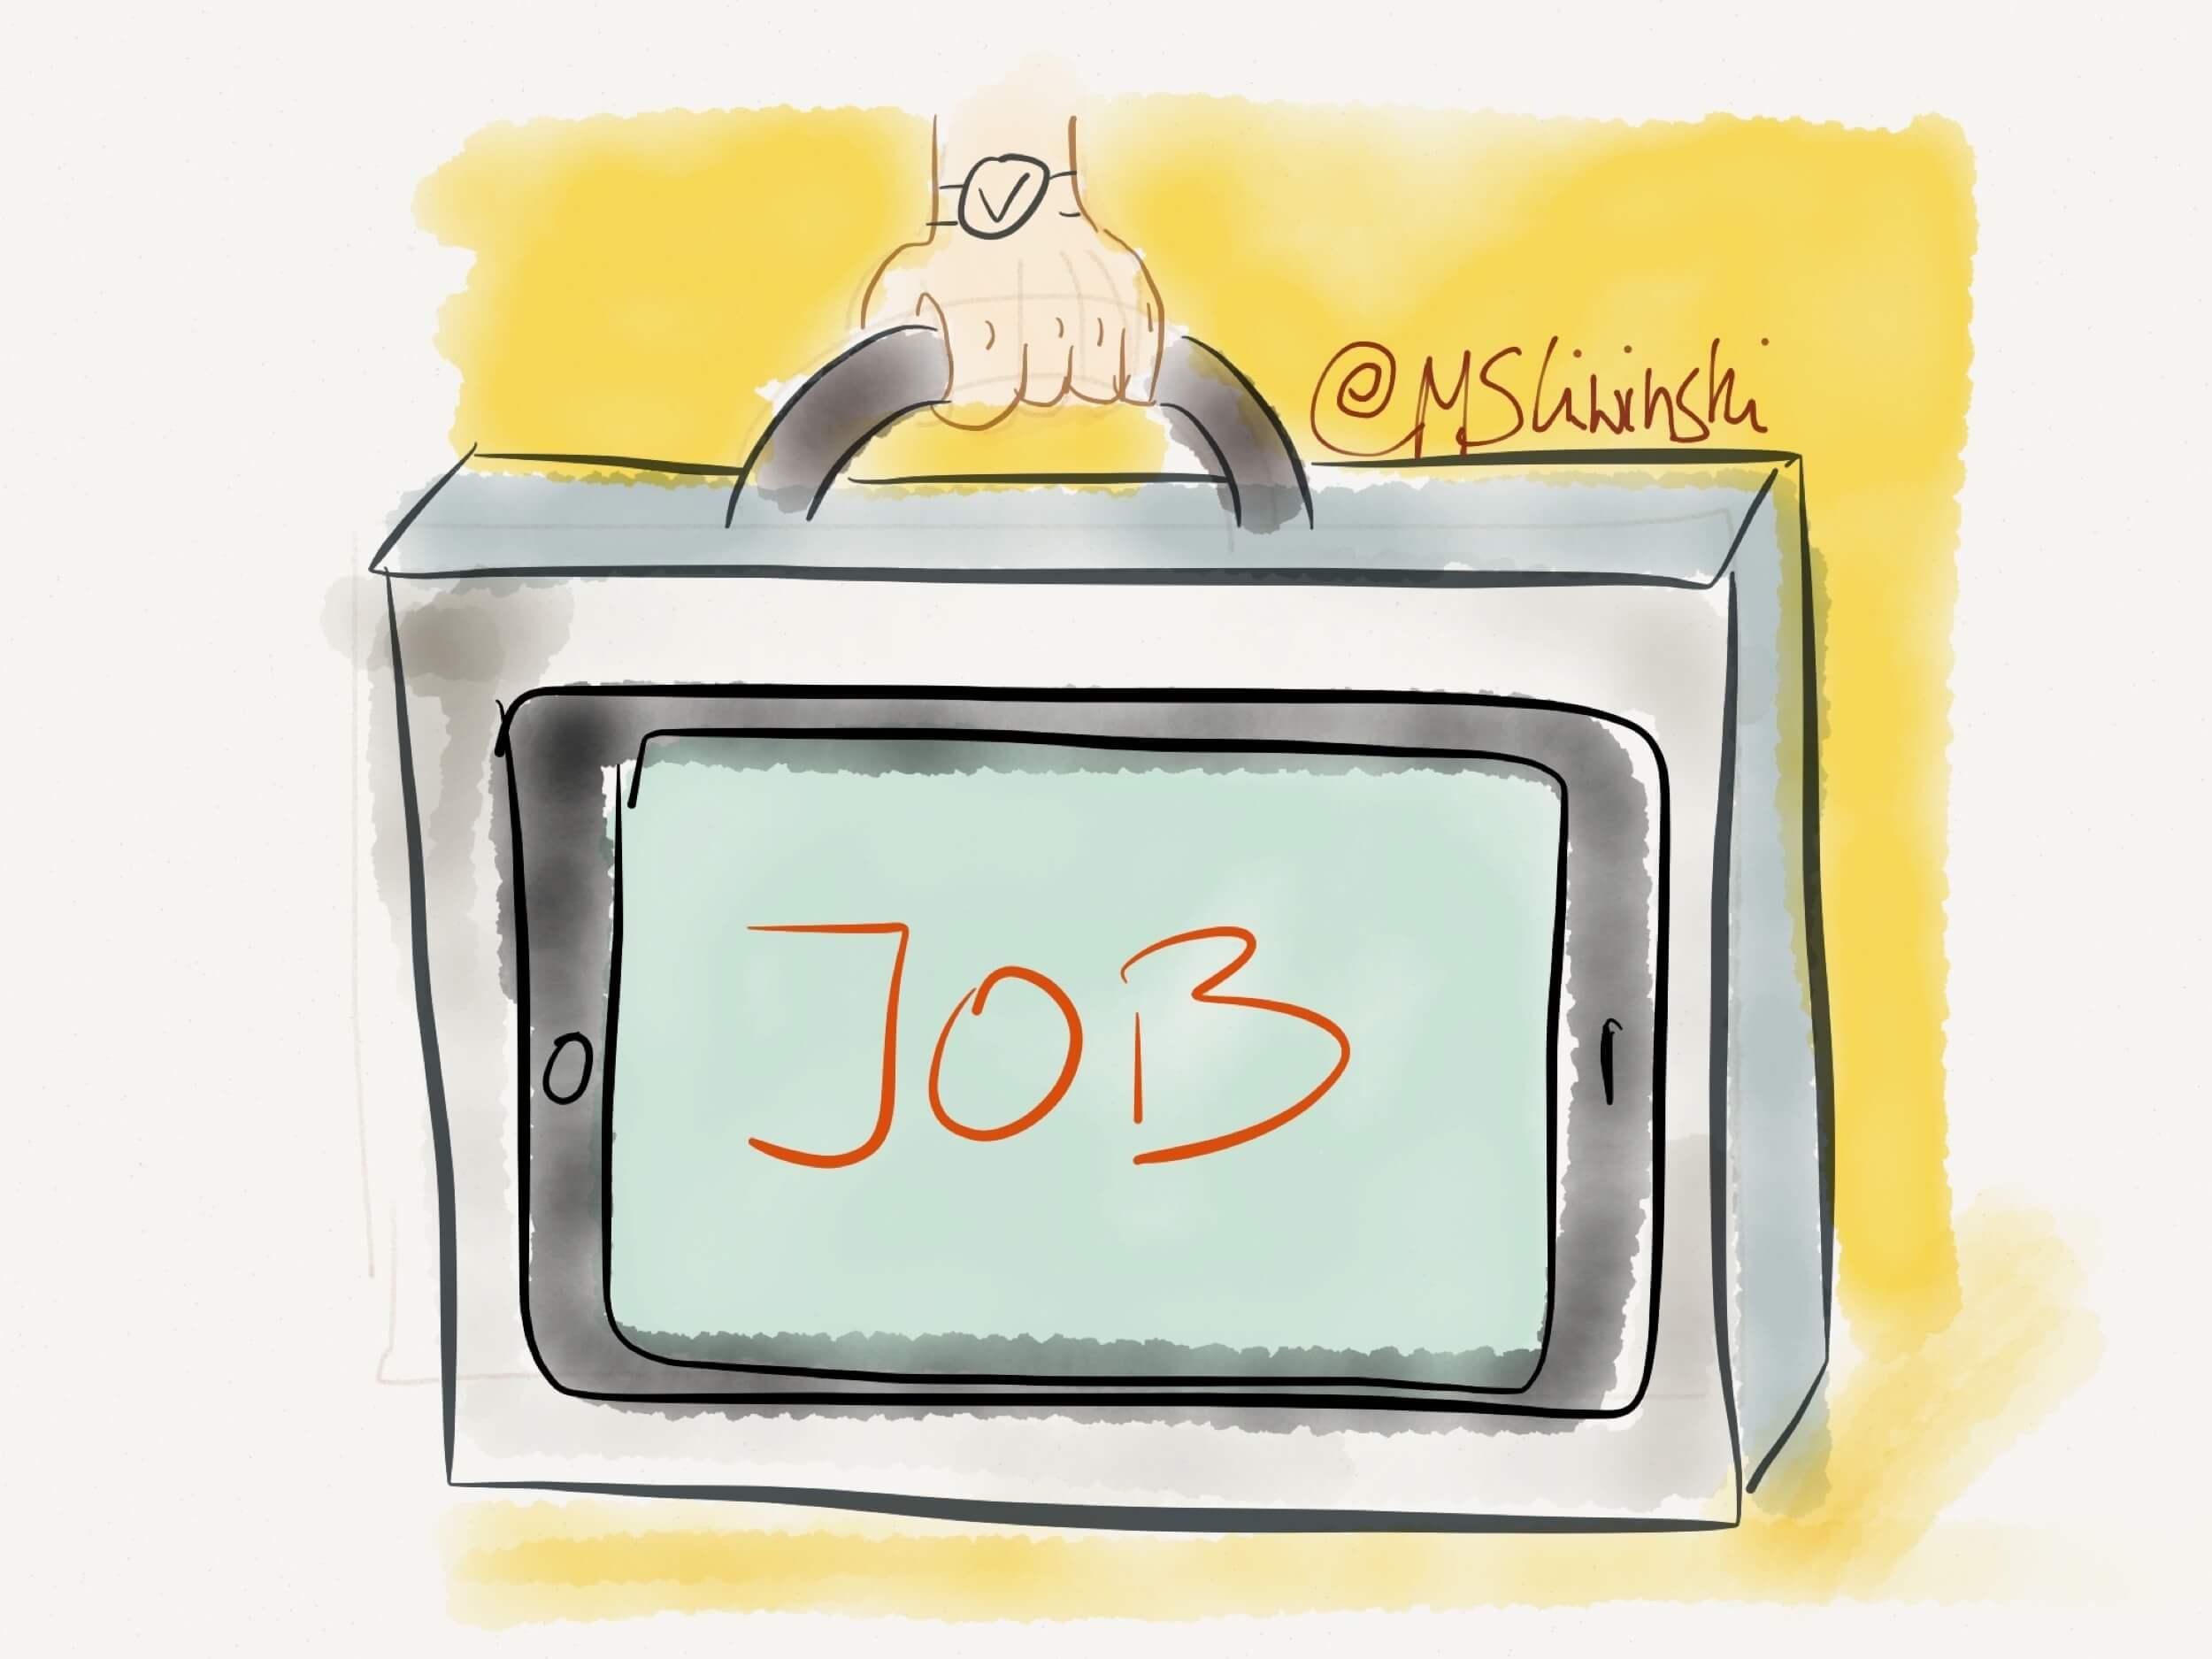 @MSliwinski
JOB